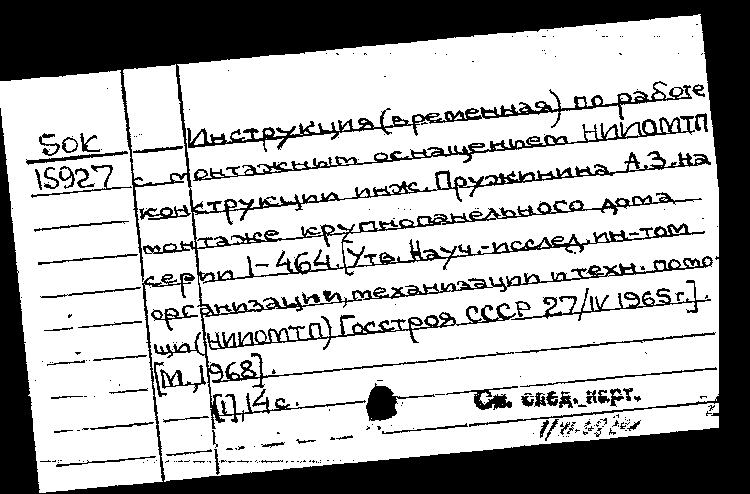 50К
15927
Инструкция (временная) по работе
с монтажным оснащением НИИОМТП
конструкции инж. Пружинина А.З. на
монтаже крупнопанельного дома
серии 1-464. [Утв. Науч.-исслед. ин-том
организации, механизации и техн. помо-
щи (НИИОМТП) Госстроя СССР 27/IV 1965 г.].
[М., 1968].
[1], 14 с.
См. след. карт.